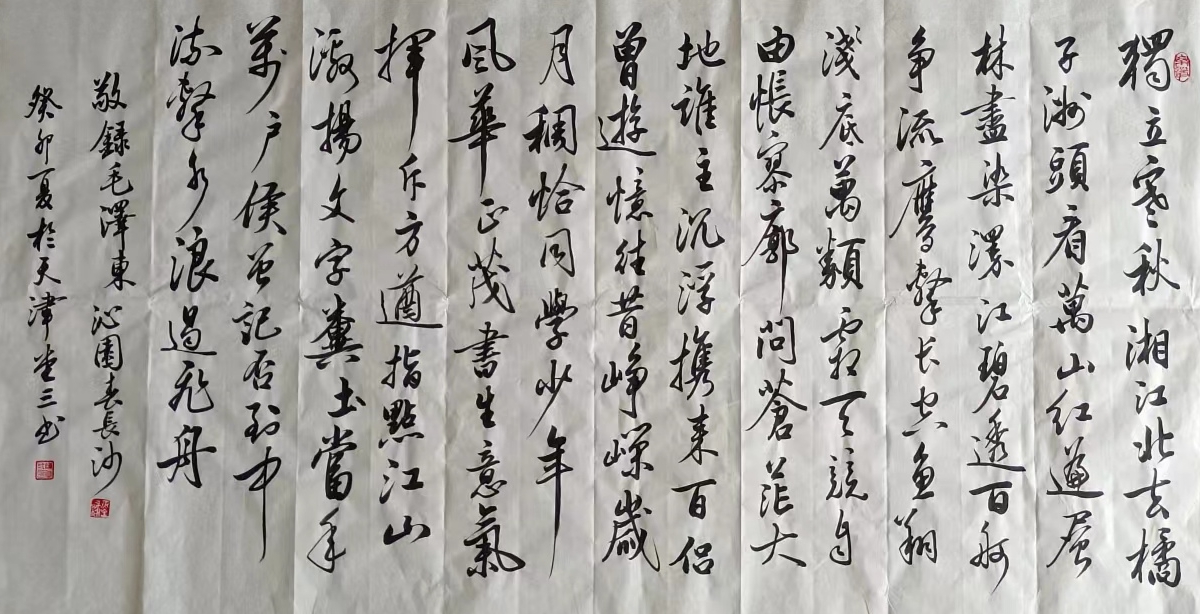 獨立寒秋湘江北去橘
子洲頭看萬山紅遍層
林盡染漫江碧透百舸
争流鷹擊长空魚翔
淺底萬類霜天競自
由悵寥廓問蒼茫大
地誰主沉浮携来百侣
曾遊憶往昔崢嶸歲
月稠恰同學少年
風華正茂書生意氣
揮斥方遒指點江山
激揚文字糞土當年
萬户侯曾記否到中
流擊水浪遏飛舟
敬録毛澤東沁園春長沙
癸卯夏於天津三书